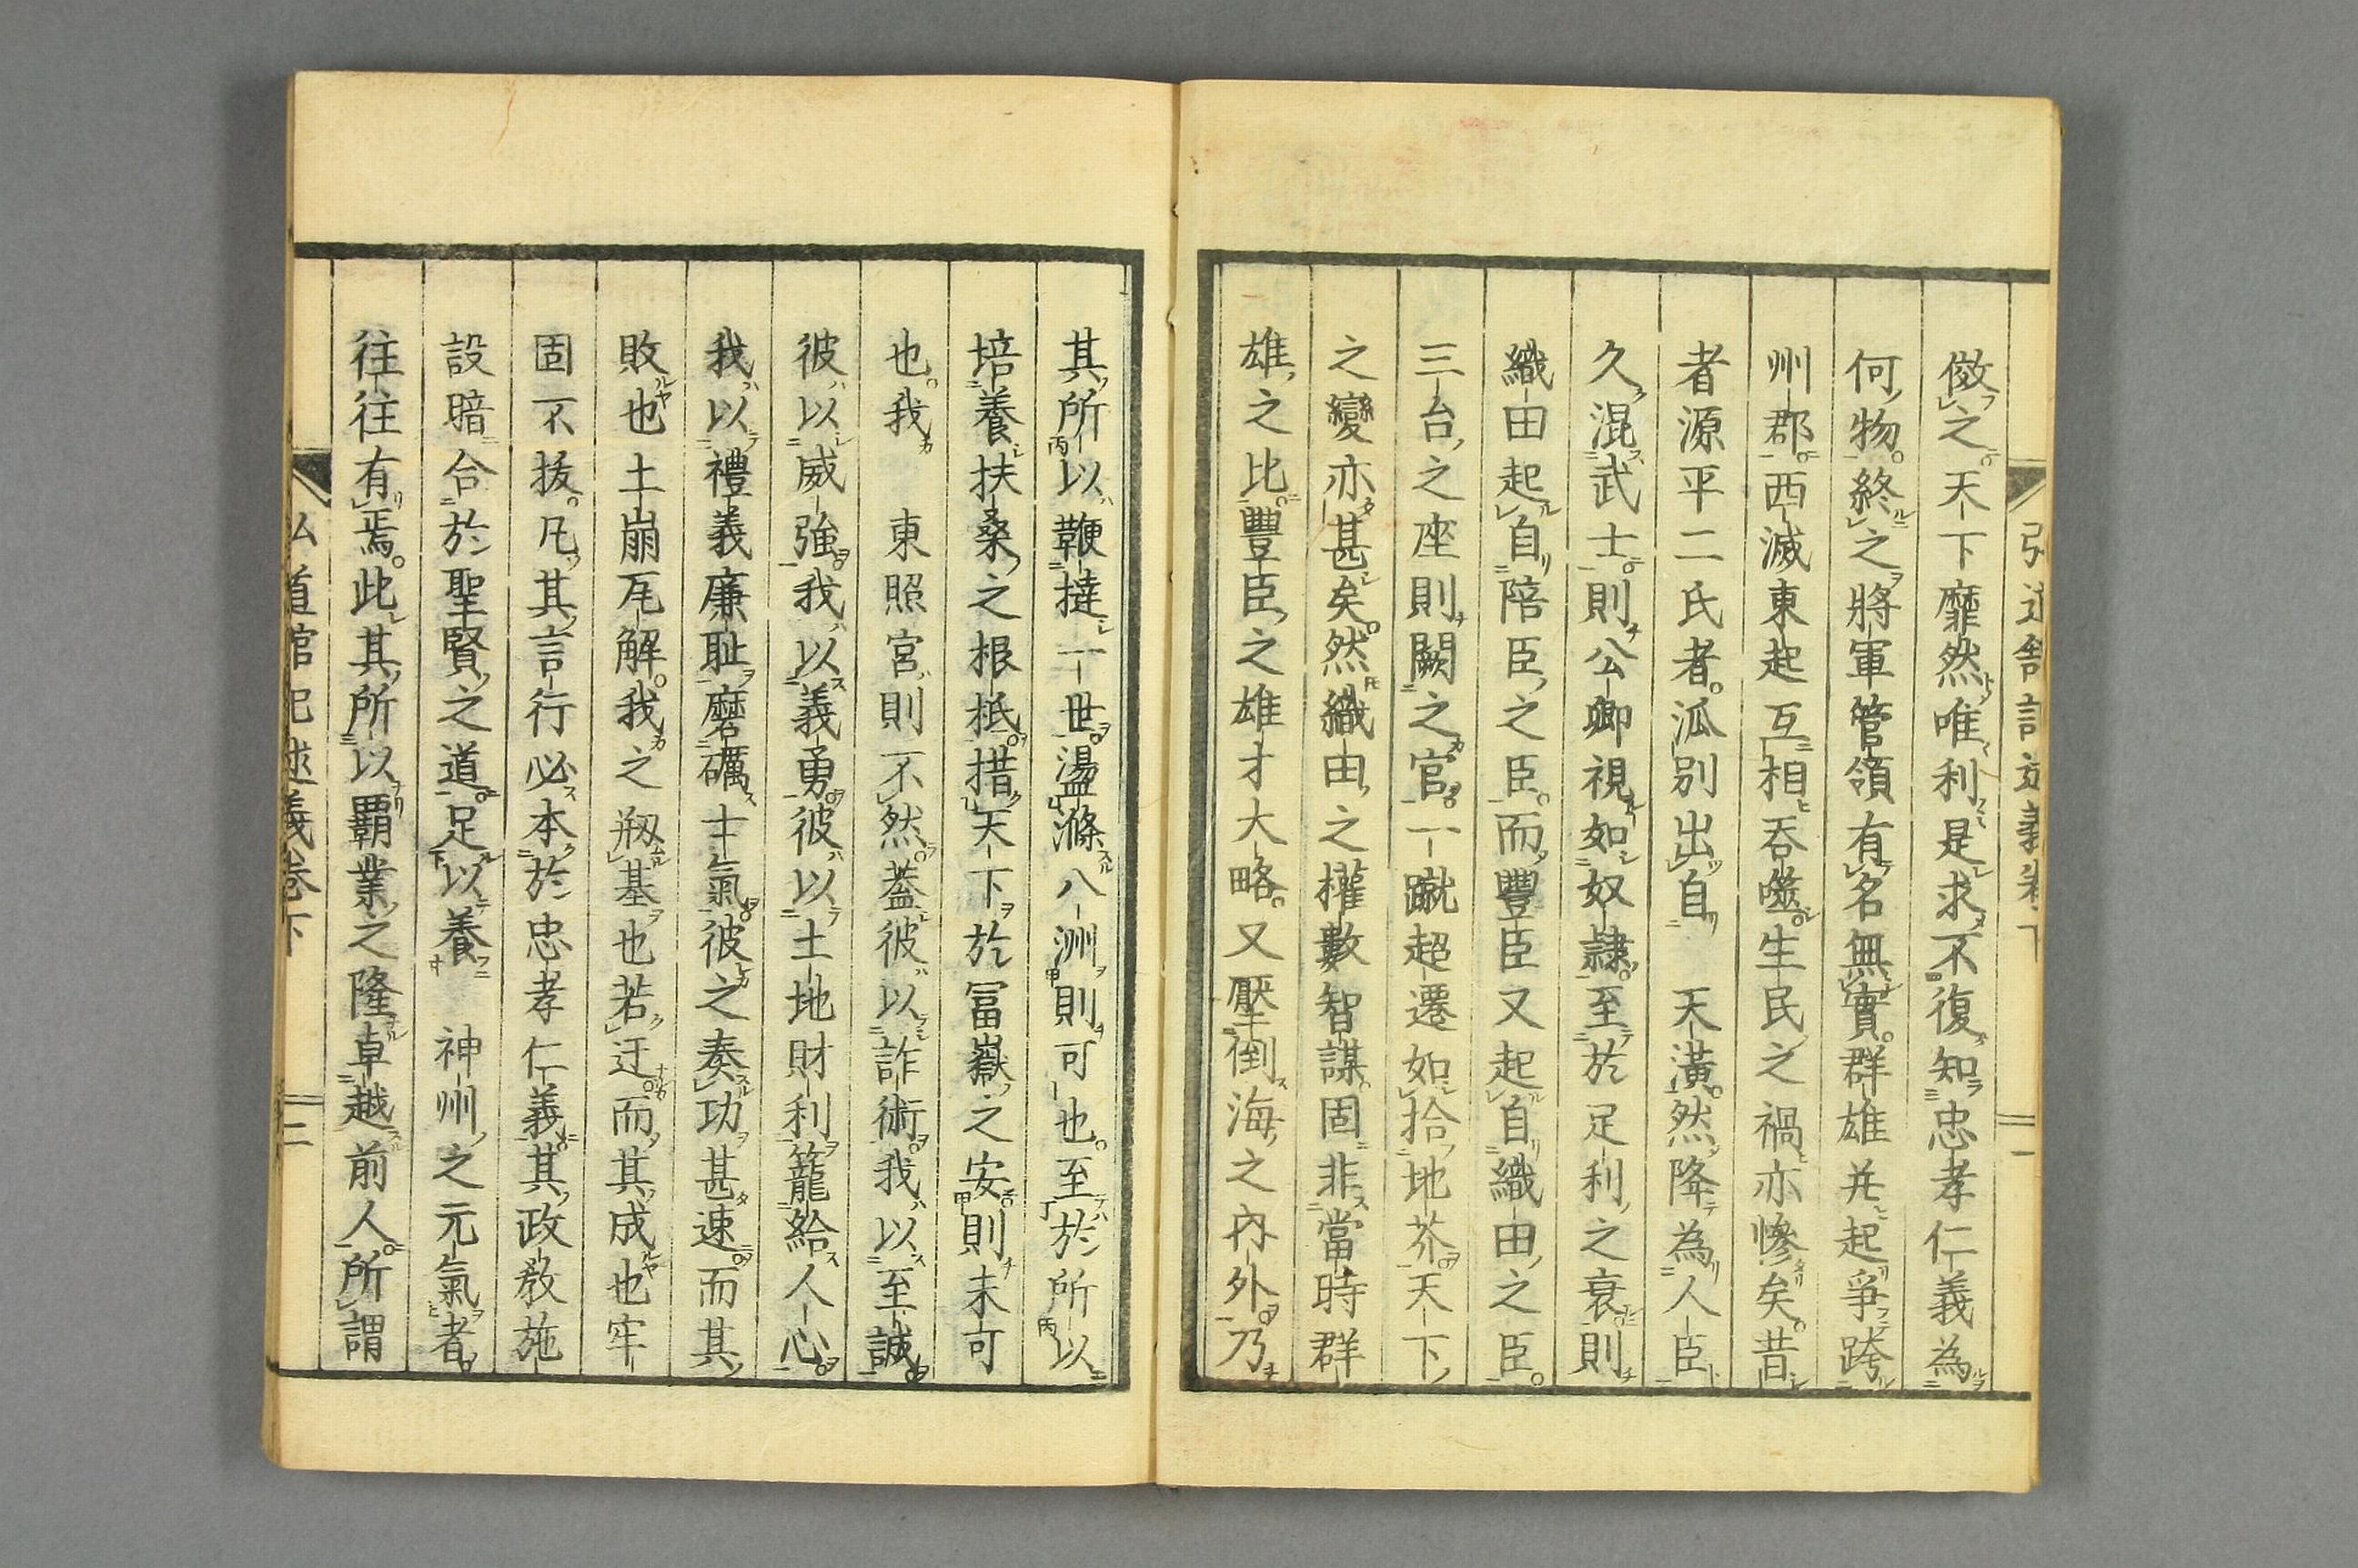 弘道館記述義卷下
一
傚之天下靡然唯利是求不復知忠孝仁義為
何物終之將軍管領有名無實群雄并起爭跨
州郡西滅東起互相吞噬生民之禍亦慘矣昔
者源平二氏者泒別出自　天潢然降為人臣
久混武士則公卿視如奴隷至於足利之衰則
織田起自陪臣之臣而豐臣又起自織田之臣
三台之座則闕之官一蹴超遷如拾地芥天下
之變亦甚矣然織田之權數智謀固非當時群
雄之比豐臣之雄才大略又壓倒海之內外乃
其所以鞭撻一世盪滌八洲則可也至於所以
培養扶桑之根柢措天下於冨嶽之安則未可
也我　東照宮則不然蓋彼以詐術我以至誠
彼以威強我以義勇彼以土地財利籠給人心
我以禮義廉耻磨礪士氣彼之奏功甚速而其
敗也土崩瓦解我之剏基也若迂而其成也牢
固不拔凡其言行必本於忠孝仁義其政敎施
設暗合於聖賢之道足以養　神州之元氣者
往往有焉此其所以覇業之隆卓越前人所謂
弘道館記述義卷下
二